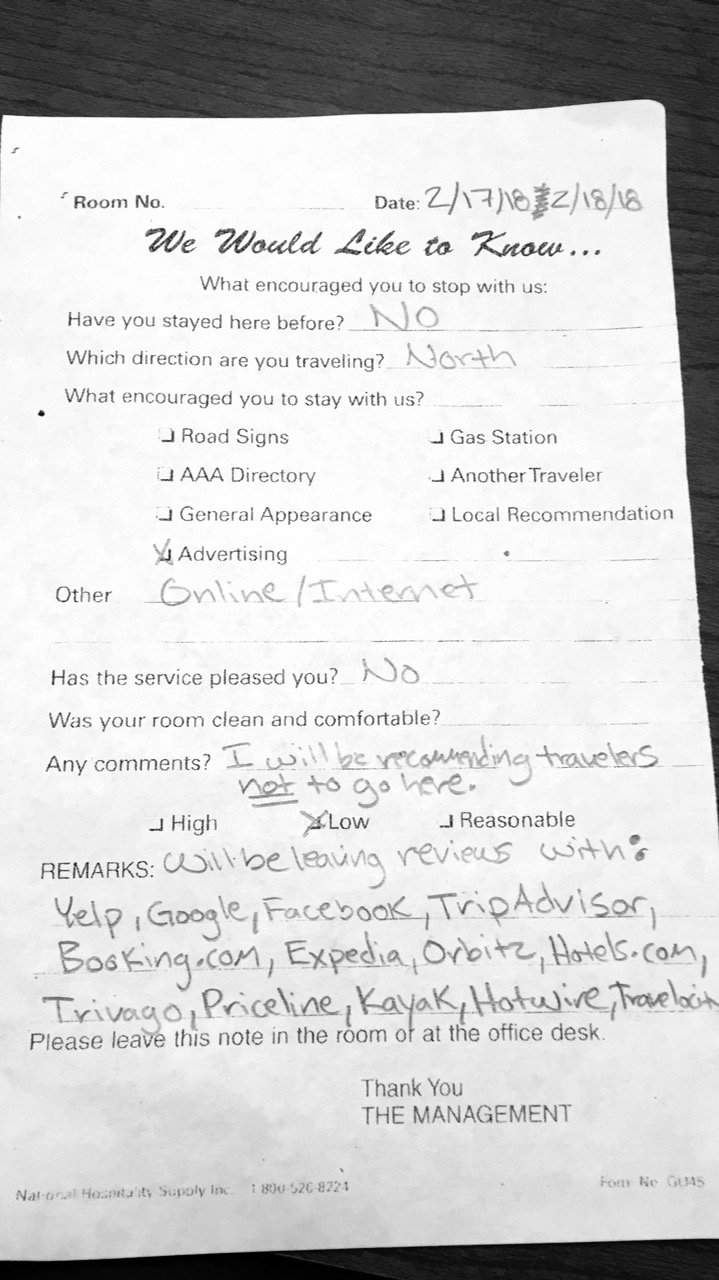 Room No. Date: 2/17/18 2/18/18
We Would Like to Know...
What encouraged you to stop with us:
Have you stayed here before? No
Which direction are you traveling? North
What encouraged you to stay with us?
Road Signs Gas Station
AAA Directory Another Traveler
General Appearance Local Recommendation
Advertising
Other Online/Internet
Has the service pleased you? No
Was your room clean and comfortable?
Any comments? I will be recommending travelers
not to go here.
High Low Reasonable
REMARKS: Will be leaving reviews with:
Yelp, Google, Facebook, TripAdvisor,
Booking.com, Expedia, Orbitz, Hotels.com,
Trivago, Priceline, Kayak, Hotwire, Travelocity
Please leave this note in the room or at the office desk.
Thank You
THE MANAGEMENT
National Hospitality Supply Inc. 1-800-526-8224 Form No. GU45